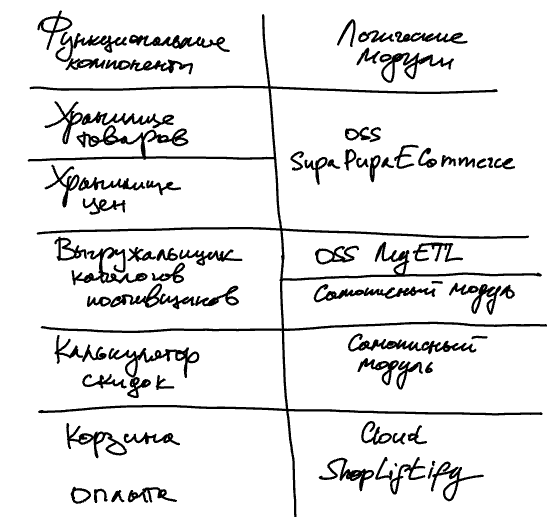 Функциональные
компоненты
Логические
модули
Хранилище
товаров
OSS
SupaPupaECommerce
Хранилище
цен
Выгружальщик
каталогов
поставщиков
OSS MyETL
Самописный модуль
Калькулятор
скидок
Самописный
модуль
Корзина
Оплата
Cloud
ShopListify